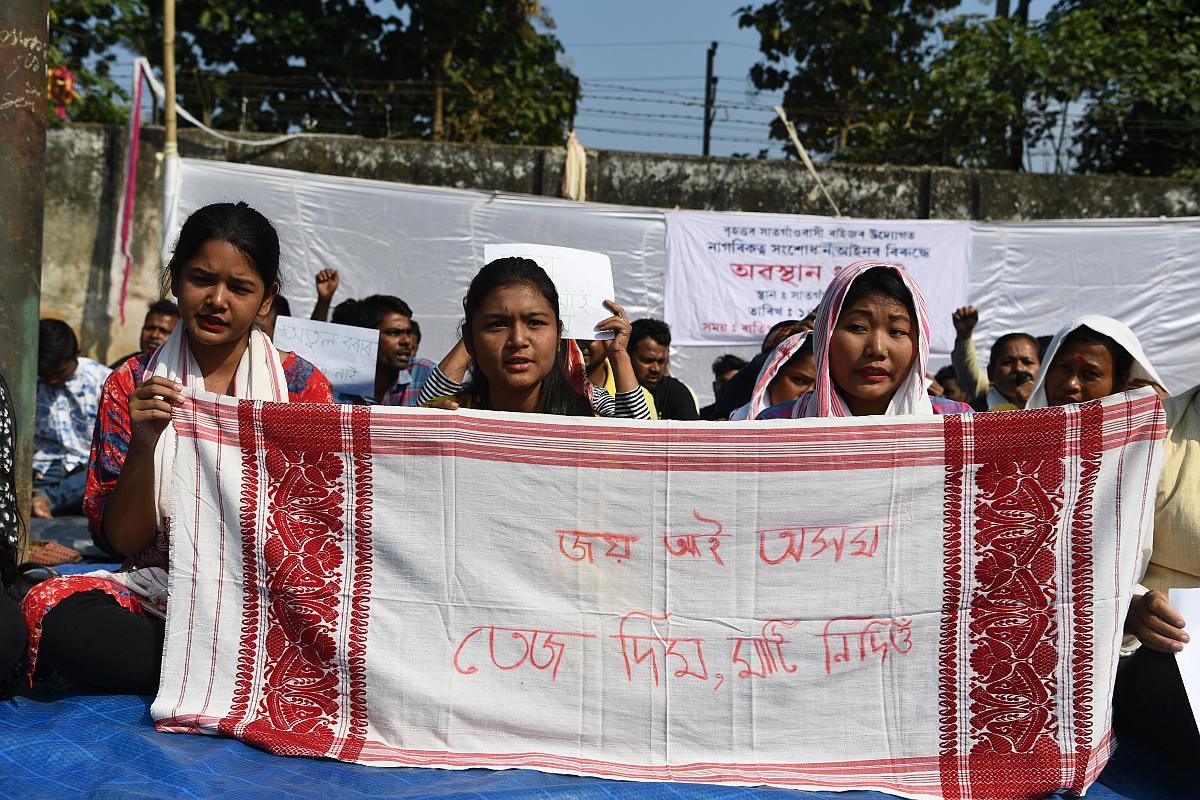 বৃহত্তৰ সাতগাঁওবাসী ৰাইজৰ উদ্যোগত
নাগৰিকত্ব সংশোধনী আইনৰ বিৰুদ্ধে
অৱস্থান
স্থান : সাতগাঁ
তাৰিখ : ১
সময় : ৰাতি
অতুল বৰাৰ
নাই
জয় আই অসম
তেজ দিম, মাটি নিদিওঁ